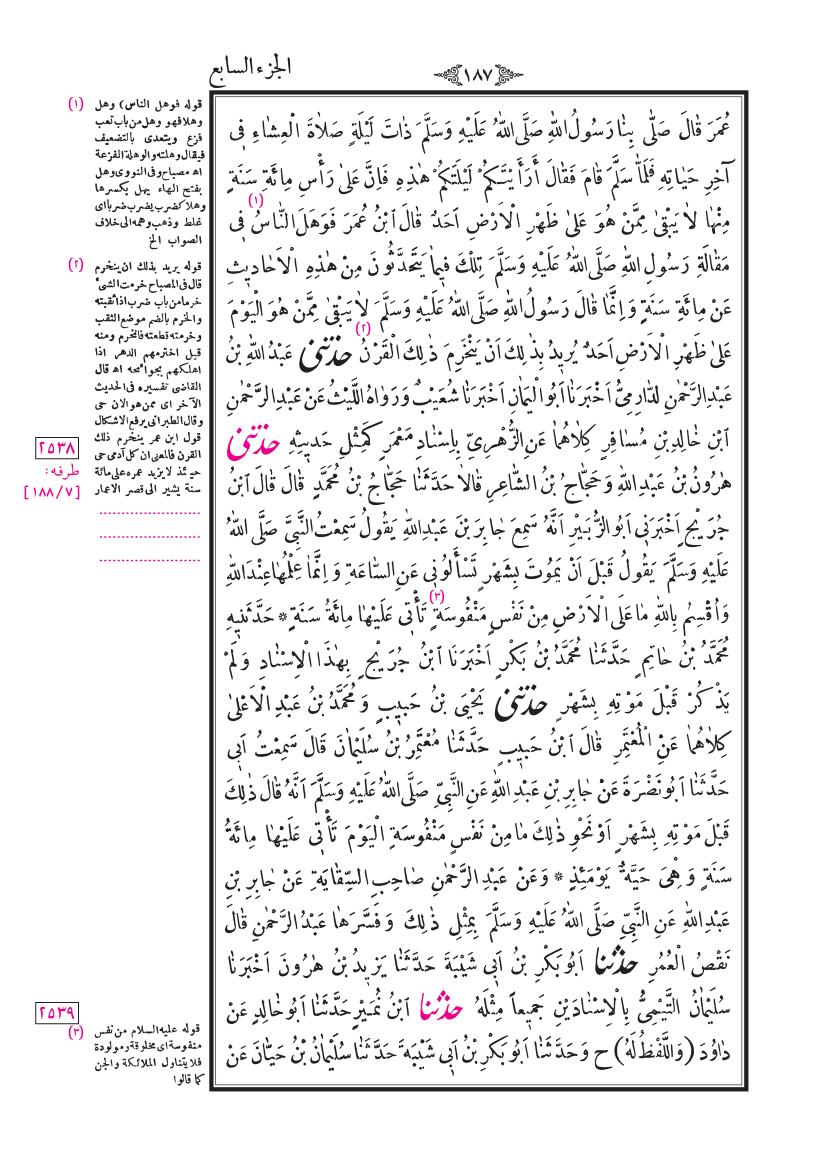 الجزء السابع
١٨٧
عُمَرَ قَالَ صَلَّى بِنَا رَسُولُ اللهِ صَلَّى اللهُ عَلَيْهِ وَسَلَّمَ ذَاتَ لَيْلَةٍ صَلَاةَ الْعِشَاءِ فِى
آخِرِ حَيَاتِهِ فَلَمَّا سَلَّمَ قَامَ فَقَالَ أَرَأَيْتَكُمْ لَيْلَتَكُمْ هٰذِهِ فَاِنَّ عَلَى رَأْسِ مِائَةِ سَنَةٍ
مِنْهَا لَا يَبْقَى مِمَّنْ هُوَ عَلَى ظَهْرِ الْاَرْضِ اَحَدٌ قَالَ ابْنُ عُمَرَ فَوَهَلَ النَّاسُ (١) فِى
مَقَالَةِ رَسُولِ اللهِ صَلَّى اللهُ عَلَيْهِ وَسَلَّمَ تِلْكَ فِيمَا يَتَحَدَّثُونَ مِنْ هٰذِهِ الْاَحَادِيثِ
عَنْ مِائَةِ سَنَةٍ وَاِنَّمَا قَالَ رَسُولُ اللهِ صَلَّى اللهُ عَلَيْهِ وَسَلَّمَ لَا يَبْقَى مِمَّنْ هُوَ الْيَوْمَ
عَلَى ظَهْرِ الْاَرْضِ اَحَدٌ يُرِيدُ بِذٰلِكَ اَنْ يَنْخَرِمَ (٢) ذٰلِكَ الْقَرْنُ حَدَّثَنِى عَبْدُ اللهِ بْنُ
عَبْدِ الرَّحْمٰنِ الدَّارِمِىُّ اَخْبَرَنَا اَبُو الْيَمَانِ اَخْبَرَنَا شُعَيْبٌ وَرَوَاهُ اللَّيْثُ عَنْ عَبْدِ الرَّحْمٰنِ
ابْنِ خَالِدِ بْنِ مُسَافِرٍ كِلَاهُمَا عَنِ الزُّهْرِىِّ بِاِسْنَادِ مَعْمَرٍ كَمِثْلِ حَدِيثِهِ حَدَّثَنِى
هٰرُونُ بْنُ عَبْدِ اللهِ وَحَجَّاجُ بْنُ الشَّاعِرِ قَالَا حَدَّثَنَا حَجَّاجُ بْنُ مُحَمَّدٍ قَالَ قَالَ ابْنُ
جُرَيْجٍ اَخْبَرَنِى اَبُو الزُّبَيْرِ اَنَّهُ سَمِعَ جَابِرَ بْنَ عَبْدِ اللهِ يَقُولُ سَمِعْتُ النَّبِىَّ صَلَّى اللهُ
عَلَيْهِ وَسَلَّمَ يَقُولُ قَبْلَ اَنْ يَمُوتَ بِشَهْرٍ تَسْأَلُونِى عَنِ السَّاعَةِ وَاِنَّمَا عِلْمُهَا عِنْدَ اللهِ
وَاُقْسِمُ بِاللهِ مَا عَلَى الْاَرْضِ مِنْ نَفْسٍ مَنْفُوسَةٍ (٣) تَأْتِى عَلَيْهَا مِائَةُ سَنَةٍ * حَدَّثَنِيهِ
مُحَمَّدُ بْنُ حَاتِمٍ حَدَّثَنَا مُحَمَّدُ بْنُ بَكْرٍ اَخْبَرَنَا ابْنُ جُرَيْجٍ بِهٰذَا الْاِسْنَادِ وَلَمْ
يَذْكُرْ قَبْلَ مَوْتِهِ بِشَهْرٍ حَدَّثَنِى يَحْيَى بْنُ حَبِيبٍ وَمُحَمَّدُ بْنُ عَبْدِ الْاَعْلَى
كِلَاهُمَا عَنِ الْمُعْتَمِرِ قَالَ ابْنُ حَبِيبٍ حَدَّثَنَا مُعْتَمِرُ بْنُ سُلَيْمَانَ قَالَ سَمِعْتُ اَبِى
حَدَّثَنَا اَبُو نَضْرَةَ عَنْ جَابِرِ بْنِ عَبْدِ اللهِ عَنِ النَّبِىِّ صَلَّى اللهُ عَلَيْهِ وَسَلَّمَ اَنَّهُ قَالَ ذٰلِكَ
قَبْلَ مَوْتِهِ بِشَهْرٍ اَوْ نَحْوِ ذٰلِكَ مَا مِنْ نَفْسٍ مَنْفُوسَةٍ الْيَوْمَ تَأْتِى عَلَيْهَا مِائَةُ
سَنَةٍ وَهْىَ حَيَّةٌ يَوْمَئِذٍ * وَعَنْ عَبْدِ الرَّحْمٰنِ صَاحِبِ السِّقَايَةِ عَنْ جَابِرِ بْنِ
عَبْدِ اللهِ عَنِ النَّبِىِّ صَلَّى اللهُ عَلَيْهِ وَسَلَّمَ بِمِثْلِ ذٰلِكَ وَفَسَّرَهَا عَبْدُ الرَّحْمٰنِ قَالَ
نَقْصُ الْعُمُرِ حَدَّثَنَا اَبُو بَكْرِ بْنُ اَبِى شَيْبَةَ حَدَّثَنَا يَزِيدُ بْنُ هٰرُونَ اَخْبَرَنَا
سُلَيْمَانُ التَّيْمِىُّ بِالْاِسْنَادَيْنِ جَمِيعاً مِثْلَهُ حَدَّثَنَا ابْنُ نُمَيْرٍ حَدَّثَنَا اَبُو خَالِدٍ عَنْ
دَاوُدَ (وَاللَّفْظُ لَهُ) ح وَحَدَّثَنَا اَبُو بَكْرِ بْنُ اَبِى شَيْبَةَ حَدَّثَنَا سُلَيْمَانُ بْنُ حَيَّانَ عَنْ
(١) قوله فوهل الناس) وهل
وهلا فهو وهل من باب تعب
فزع ويتعدى بالتضعيف
فيقال وهلته والوهلة الفزعة
اه مصباح وفى النووى وهل
بفتح الهاء يهل بكسرها
وهلا كضرب يضرب ضربا اى
غلط وذهب وهمه الى خلاف
الصواب الخ
(٢) قوله يريد بذلك ان ينخرم
قال فى المصباح خرمت الشئ
خرما من باب ضرب اذا ثقبته
والخرم بالضم موضع الثقب
وخرمته قطعته فانخرم ومنه
قيل اخترمهم الدهر اذا
اهلكهم بجوائحه اه قال
القاضى تفسيره فى الحديث
الآخر اى ممن هو الان حى
وقال الطبرانى يرفع الاشكال
قول ابن عمر ينخرم ذلك
القرن فالمعنى ان كل آدمى حى
حينئذ لا يزيد عمره على مائة
سنة يشير الى قصر الاعمار
٢٥٣٨
طرفه:
[١٨٨/٧]
٢٥٣٩
(٣) قوله عليه السلام من نفس
منفوسة اى مخلوقة ومولودة
فلا يتناول الملائكة والجن
كما قالوا